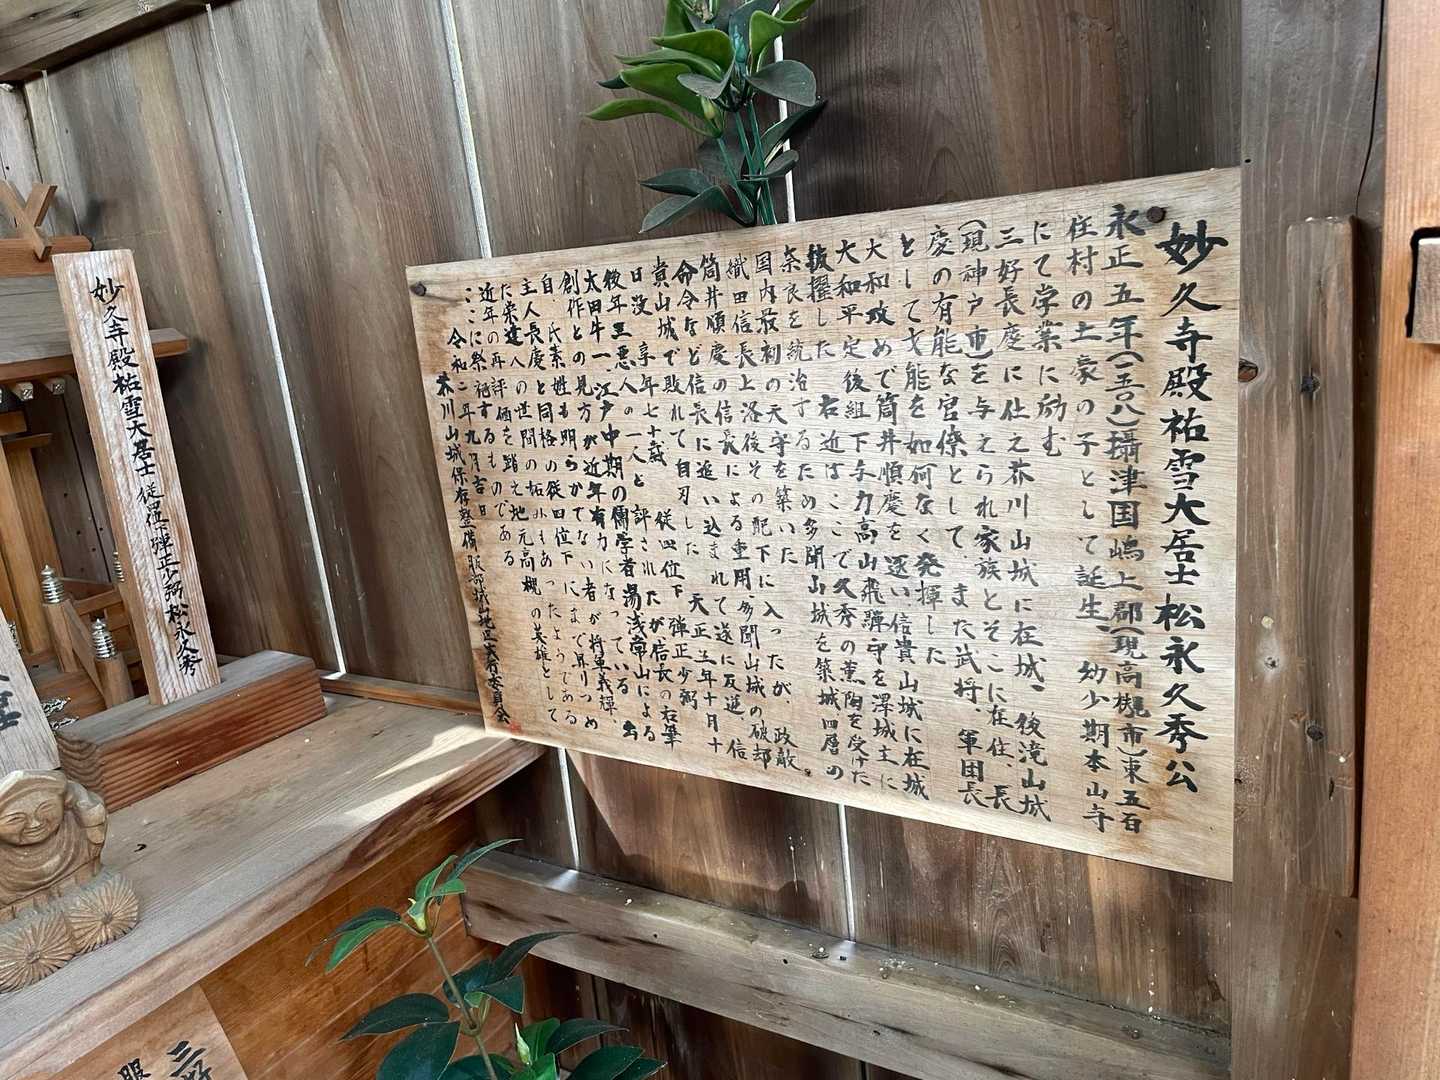 妙久寺殿祐雪大居士松永久秀公
永正五年(一五〇八)攝津国嶋上郡(現高槻市)東五百
住村の土豪の子として誕生、幼少期本山寺
にて学業に励む
三好長慶に仕え芥川山城に在城、後滝山城
(現神戸市)を与えられ家族とそこに在住、長
慶の有能な官僚として、また武将、軍団長
として才能を如何なく発揮した
大和攻めで筒井順慶を逐い信貴山城に在城
大和平定後組下与力高山飛騨守を澤城主に
抜擢した 右近はここで久秀の薫陶を受けた
奈良を統治するため多聞山城を築城四層の
国内最初の天守を築いた
織田信長上洛後その配下に入ったが、政敵
筒井順慶の信長による重用、多聞山城の破却
命令など信長に追い込まれて遂に反逆 信
貴山城で敗れて自刃した 天正五年十月十
日没 享年七十歳 従四位下 弾正少弼
後年三悪人の一人と評されたが信長の右筆
太田牛一、江戸中期の儒学者湯浅常山による
創作との見方が近年有力になっている
自 氏素姓も明らかでない者が将軍義輝、
主人長慶と同格の従四位下にまで昇りつめ
た栄達人の世間の妬みもあったようである
近年の再評価を踏え地元高槻の英雄として
ここに祭祀するものである
令和二年九月吉日
芥川山城保存整備服部城山地区実行委員会
妙久寺殿祐雪大居士 従四位下弾正少弼松永久秀
三好
服